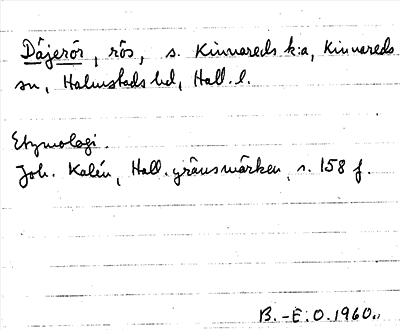 Däjerör, rös, s. Kinnareds k:a, Kinnareds
sn, Halmstads hd, Hall. l.
Etymologi.
Joh. Kalén, Hall. gränsmärken, s. 158 f.
B.-E. O. 1960.